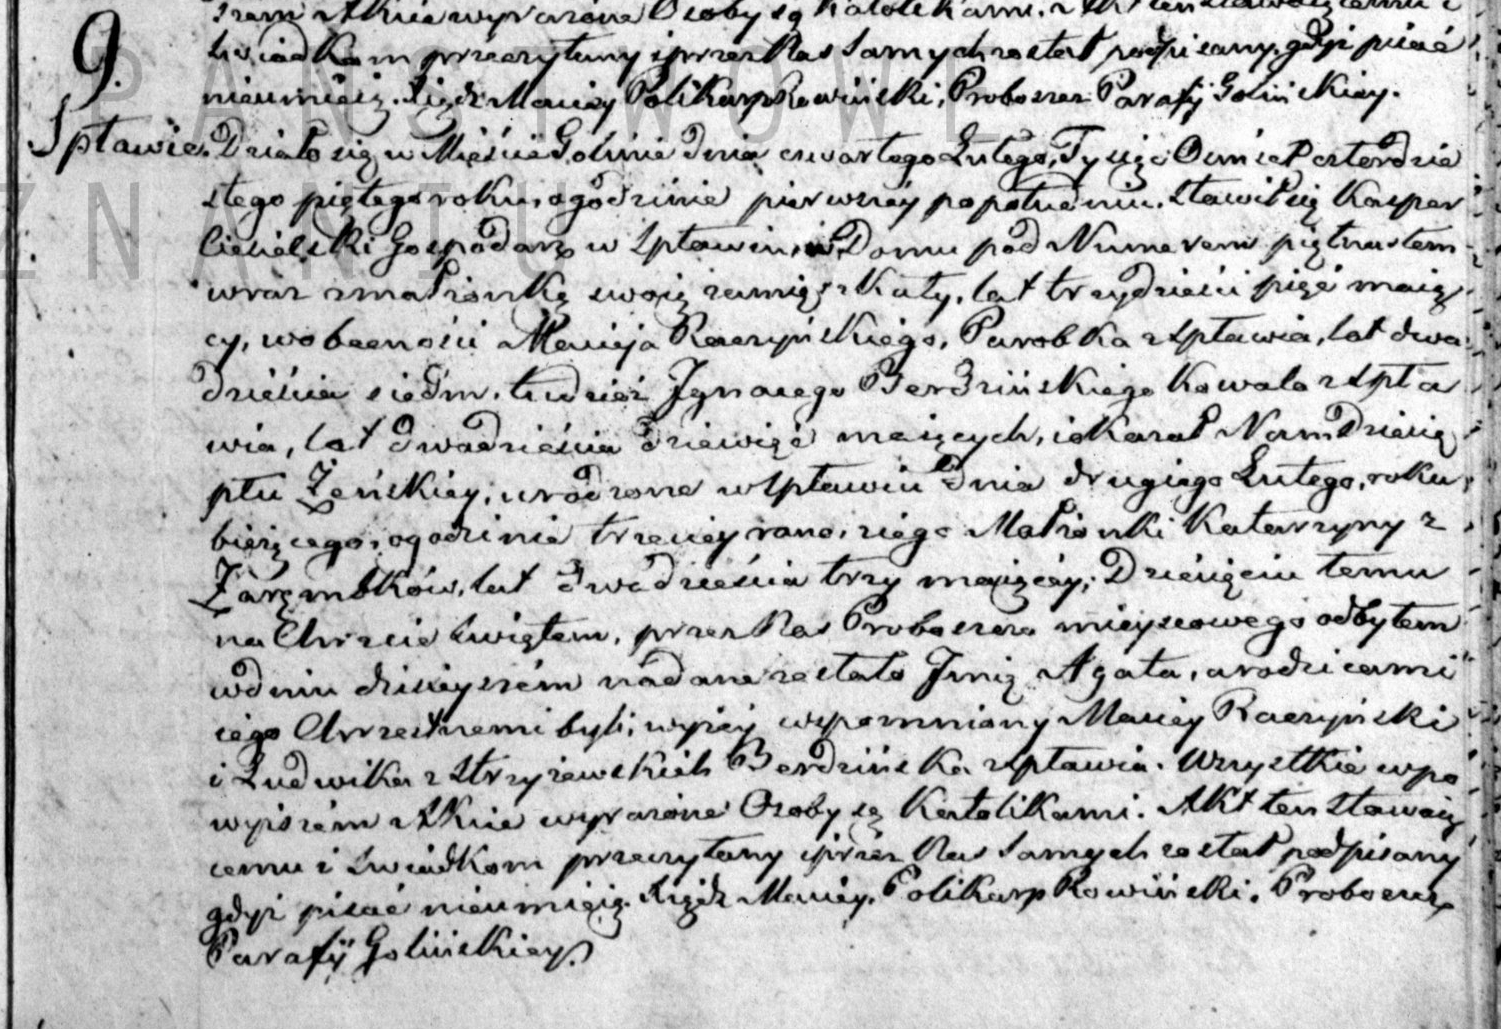 szem Akcie wyrażone Osoby są Katolikami. Akt ten stawaiącemu i
9.
Swiadkom przeczytany i przez Nas Samych został podpisany, gdyż pisać
nieumieią. Xiądz Maciey Polikarp Rowiński, Proboszcz Parafij Golińskiey.
Spławie. Działo się w Mieście Golinie Dnia czwartego Lutego, Tysiąc Ośmset czterdzie
stego piętego roku, o godzinie pierwszéy popołudniu. Stawił się Kasper
Ciesielski Gospodarz w Spławiu, w Domu pod Numerem piętnastem
wraz z małżonką swoią zamięszkały, lat trzydzieści pięć maią
cy, w obecności Macieja Raczyńskiego, Parobka z Spławia, lat dwa
dzieścia siedm, tudzież Jgnacego Berdzińskiego Kowala z Spła
wia, lat dwadzieścia dziewięć maiących, i okazał Nam Dziecię
płci Żeńskiey, urodzone w Spławiu Dnia drugiego Lutego, roku
bieżącego, o godzinie trzeciey rano, z iego Małżonki Katarzyny z
Zarembków, lat dwadzieścia trzy maiącéy; Dziecięciu temu
na Chrzcie Swiętem, przez Nas Proboszcza mieyscowego odbytem
w dniu dzisieyszém nadane zostało Jmię Agata, a rodzicami
iego Chrzestnemi byli, wyżéy wspomniony Maciey Raczyński
i Ludwika z Strzyżewskich Berdzińska z Spławia. Wszystkie w po
wyższém Akcie wyrażone Osoby są Katolikami. Akt ten Stawaią
cemu i Swiadkom przeczytany i przez Nas Samych został podpisany
gdyż pisać nieumieią. Xiądz Maciéy Polikarp Rowiński. Proboszcz
Parafij Golińskiey.
PAŃSTWOWE
ZNANIU